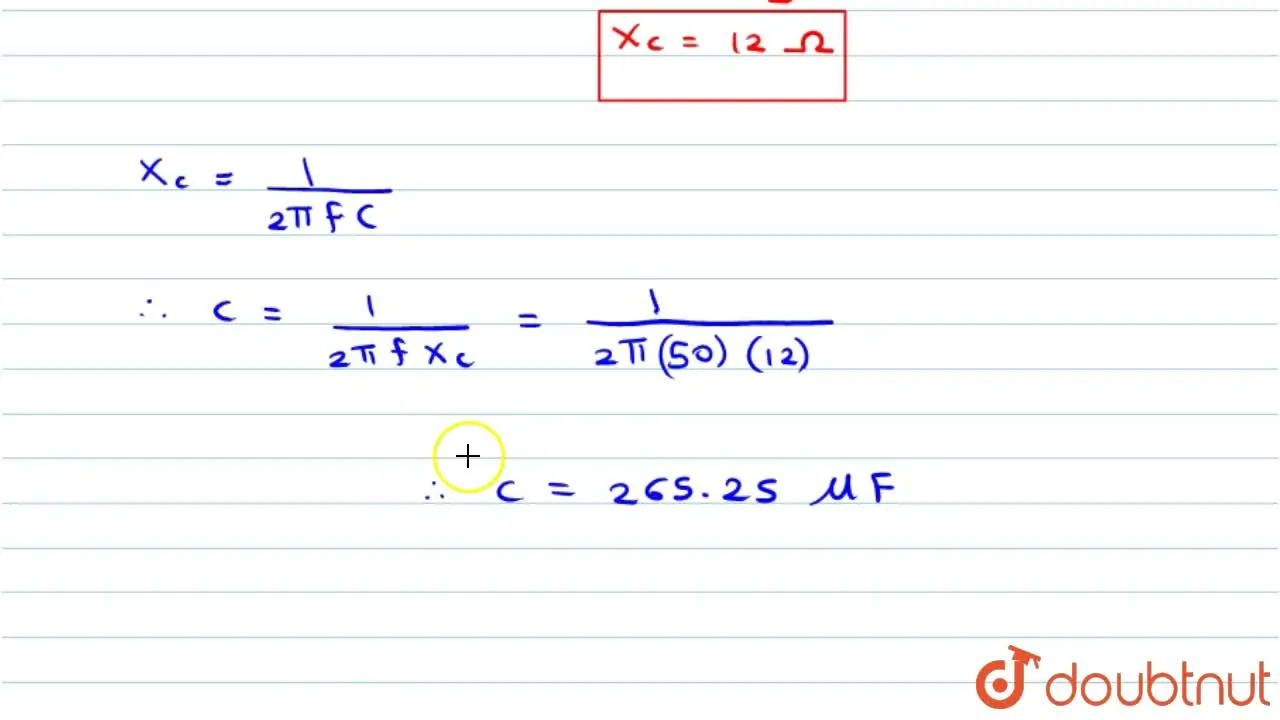 Xc = 12 Ω
Xc = 1 / 2π f C
∴ C = 1 / 2π f Xc = 1 / 2π (50) (12)
∴ C = 265.25 μF
doubtnut